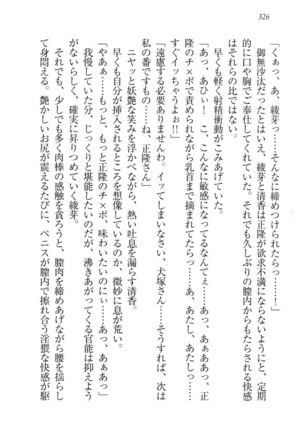 326
「くっ、あっ、綾芽っ……そんなに締めつけられたらっ……！」
御無沙汰だったとはいえ、綾芽と清香は正隆が欲求不満にならないようにと、定期
的に口や胸でご奉仕してくれていた。しかし、それよりも久しぶりの膣内からもたらされる快感
はそれらの比ではない。
早くも軽く射精衝動がこみあげていた。
「あっ、あひぃ！ こ、こんなに敏感になってるなんてぇ……あっ、あっ、あぁっ、正
隆のチ×ポで責められながら乳首まで揉まれてたらっ……あ、あたし、あたしっ……
すぐイッちゃうよぉ!!」
「遠慮する必要ありませんわ。イッてしまいなさい、犬塚さん……そうすれば、次は
私の番ですもの……ね、正隆さん」
ニヤッと妖艶な笑みを浮かべながら、熱い吐息を漏らす清香。
早くも自分が挿入されるところを想像しているのか、微妙に息が荒い。
「やぁぁ……もっと、もっと正隆のチ×ポ、味わいたいのにぃ……あっ、あぁっ」
我慢していた分、じっくりと堪能したいのだが、沸きあがってくる官能は抑えよう
がないらしく、確実に昇りつめていく綾芽。
それでも、少しでも多く肉棒の感触を貪ろうと、膣肉を締めあげながら腰を揺らし
て身悶える。艶かしいお尻が震えるたびに、ペニスが膣内で擦れ合う淫猥な快感が駆